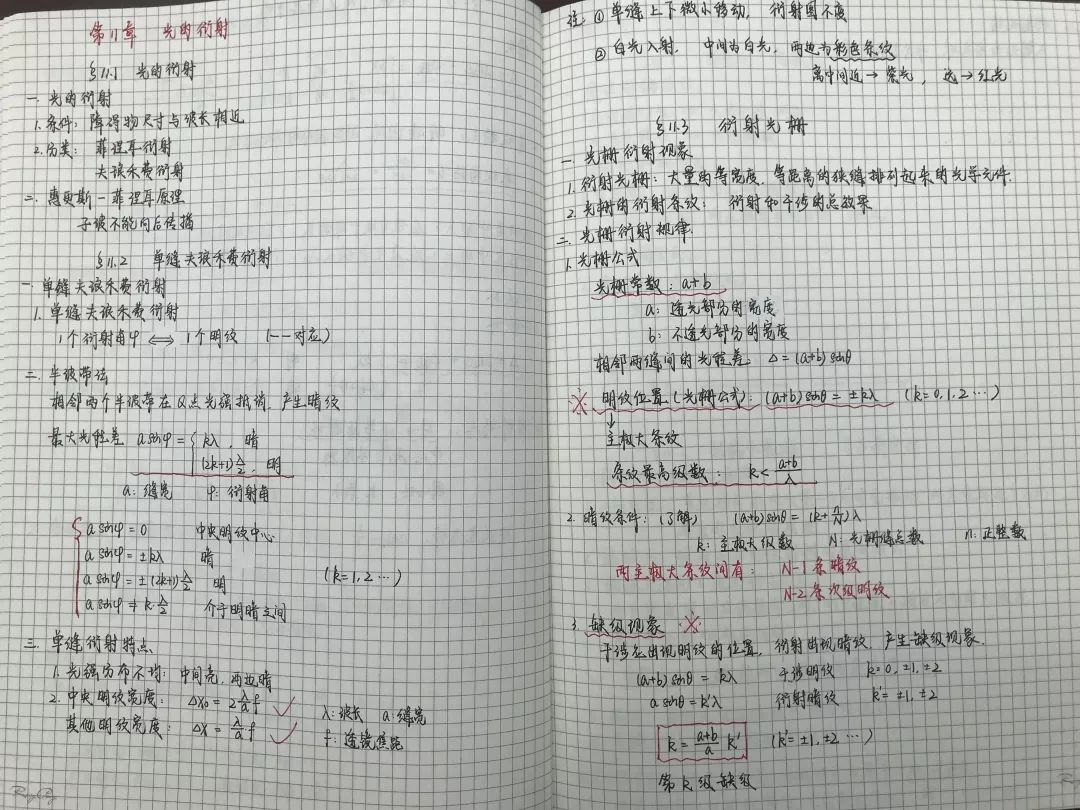 第11章 光的衍射
§11.1 光的衍射
一. 光的衍射
1.条件: 障碍物尺寸与波长相近
2.分类: 菲涅耳衍射
夫琅禾费衍射
二. 惠更斯-菲涅耳原理
子波不能向后传播
§11.2 单缝夫琅禾费衍射
一.单缝夫琅禾费衍射
1.单缝夫琅禾费衍射
1个衍射角φ ⟺ 1个明纹 (一一对应)
二.半波带法
相邻两个半波带在Q点光强抵消,产生暗纹
最大光程差 a sinφ = { kλ, 暗
(2k+1)λ/2, 明
a:缝宽 φ:衍射角
a sinφ = 0 中央明纹中心
a sinφ = ±kλ 暗
a sinφ = ±(2k+1)λ/2 明 (k=1,2…)
a sinφ ≠ k·λ/2 介于明暗之间
三. 单缝衍射特点
1.光强分布不均: 中间亮,两边暗
2.中央明纹宽度: Δx₀ = 2λ/a f ✓
其他明纹宽度: Δx = λ/a f ✓
λ:波长 a:缝宽
f:透镜焦距
注: ① 单缝上下微小移动, 衍射图不变
② 白光入射, 中间为白光, 两边为彩色条纹
离中间近→紫光, 远→红光
§11.3 衍射光栅
一. 光栅衍射现象
1.衍射光栅: 大量的等宽度、等距离的狭缝排列起来的光学元件.
2.光栅的衍射条纹: 衍射和干涉的总效果
二.光栅衍射规律.
1.光栅公式
光栅常数: a+b
a: 透光部分的宽度
b: 不透光部分的宽度
相邻两缝间的光程差: Δ=(a+b)sinθ
※ 明纹位置(光栅公式): (a+b)sinθ = ±kλ (k=0,1,2…)
↓
主极大条纹
条纹最高级数: k < (a+b)/λ
2.暗纹条件: (了解) (a+b)sinθ = (k+n/N)λ
k: 主极大级数 N: 光栅缝总数 n: 正整数
两主极大条纹间有: N-1条暗纹
N-2条次级明纹
3.缺级现象 ※
干涉应出现明纹的位置, 衍射出现暗纹, 产生缺级现象.
(a+b)sinθ = kλ 干涉明纹 k=0,±1,±2
a sinθ = k'λ 衍射暗纹 k'=±1,±2
k = (a+b)/a k' (k'=±1,±2…)
第k级缺级